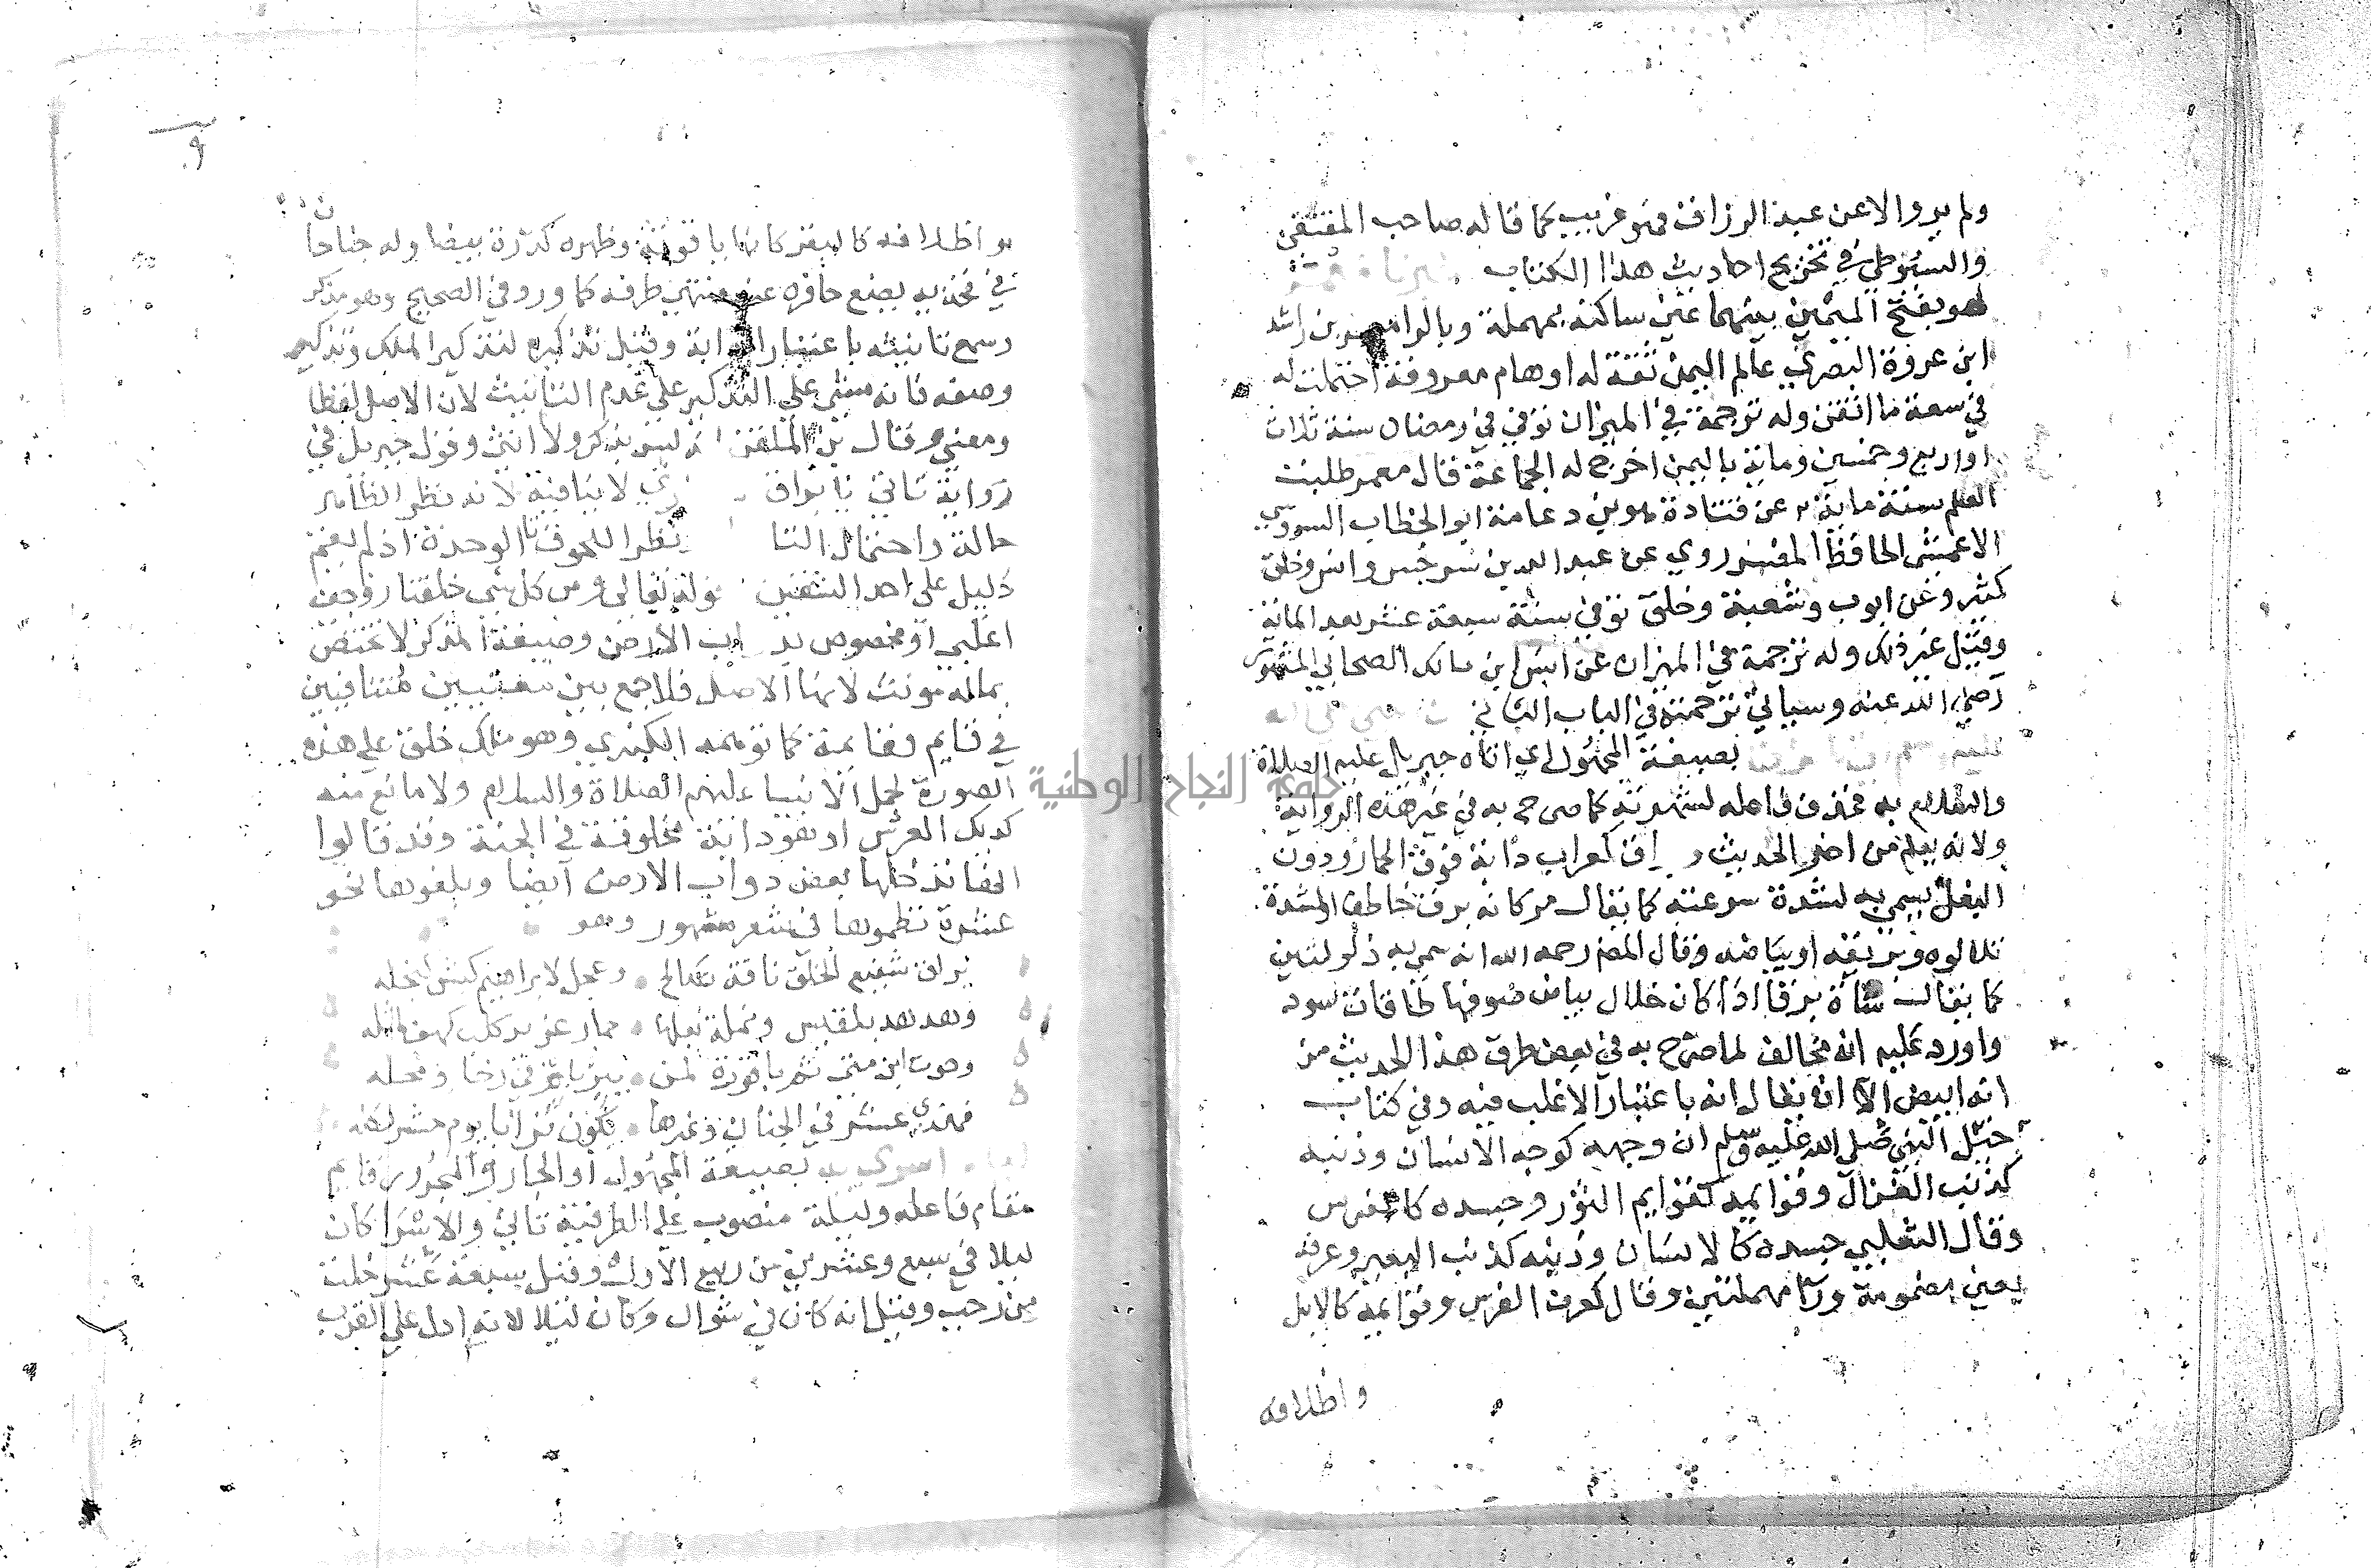 ولم يروا الا عن عبد الرزاق فهو غريب كما قاله صاحب المقتفى
والسيوطي في تخريج احاديث هذا الكتاب
هو بفتح الميمين بينهما عين ساكنة مهملة وبالراء بن راشد
ابن عروة البصري عالم اليمن ثقة له اوهام معروفة احتملت له
في سعة ما اتقن وله ترجمة في الميزان توفي في رمضان سنة ثلاث
او اربع وخمسين ومائة باليمن اخرج له الجماعة قال معمر طلبت
العلم سنة مائة عن قتادة هو بن دعامة ابو الخطاب السدوسي
الاعمى الحافظ المفسر روي عن عبد الله بن سرجس وانس وخلق
كثير وعن ايوب وشعبة وخلق توفي سنة سبعة عشر بعد المائة
وقيل غير ذلك وله ترجمة في الميزان عن انس ابن مالك الصحابي المشهور
رضي الله عنه وسيأتي ترجمته في الباب الثاني
بصيغة المجهول اي اتاه جبريل عليه الصلاة
والسلام به فحذف فاعله لشهرته كما صرح به في غير هذه الرواية
ولانه يعلم من اخر الحديث كغراب دابة فوق الحمار ودون
البغل سمي به لشدة سرعته كما يقال مر كانه برق خاطف او لشدة
تلالوه وبريقه او بياضه وقال المص رحمه الله انه سمي به ذلو لنين
كما يقال شاة برقا اذا كان خلال بياض صوفها طاقات سود
واورد عليه انه مخالف لما صرح به في بعض طرق هذا الحديث من
انه ابيض الا ان يقال انه باعتبار الاغلب فيه وفي كتاب
خيل النبي صلى الله عليه وسلم ان وجهه كوجه الانسان وذنبه
كذنب الغزال وقوايمه كقوايم الثور وجسده كالفرس
وقال الثعلبي جسده كالانسان وذنبه كذنب البعير وعرفه
يعني بمضمومة ورا مهملتين وقال كعرف الفرس وقوايمه كالابل
واظلافه
٩
واظلافه كالبقر كانها ياقوتة وظهره كدرة بيضا وله جناحان
في فخذيه يضع حافره عند منتهى طرفه كما ورد في الصحيح وهو مذكر
وسمع تانيثه باعتبار الدابة وقيل تذكيره لتذكير الملك وتذكير
وصفه فانه مبني علي التذكير علي عدم التانيث لان الاصل لفظا
ومعني وقال بن الملقن ليس بذكر ولا انثي وقول جبريل في
رواية تاتي يا براق لا ينافيه لانه نظر الظاهر
حالة واحتمال التا نظرا للحوق تا الوحدة اذ لم يقم
دليل علي احد الشقين قوله تعالي ومن كل شي خلقنا زوجين
اغلبي او مخصوص بدواب الارض وصيغة المذكر لا تختص
بماله مونث لانها الاصل فلا جمع بين متنافيين
في قايم وقايمة كما توهمه الكندي وهو ملك خلق علي هذه
الصورة لحمل الانبيا عليهم الصلاة والسلام ولا مانع منه
كديك العرش او هو دابة مخلوقة في الجنة وقد قالوا
انها قد دخلها بعض دواب الارض ايضا وبلغوها نحو
عشرة نظموها في شعر مشهور وهو
براق شفيع الخلق ناقة صالح وعجل لابراهيم كبش لنجله
وهدهد بلقيس ونملة بعلها حمار عزير كلب كهف لاهله
وحوت ابن متي ثم باقورة لمن يبر بامر في رخا ومحله
فهذي عشر في الجنان وغيرها يكون ترابا يوم حشر لكله
اسري به بصيغة المجهول او الجار والمجرور قايم
مقام فاعله وليلة منصوب علي الظرفية تاتي والاسرا كان
ليلا في سبع وعشرين من ربيع الاول وقيل سبعة عشر خلت
من رجب وقيل انه كان في شوال وكان ليلا لانه ادل علي القرب
جامعة النجاح الوطنية